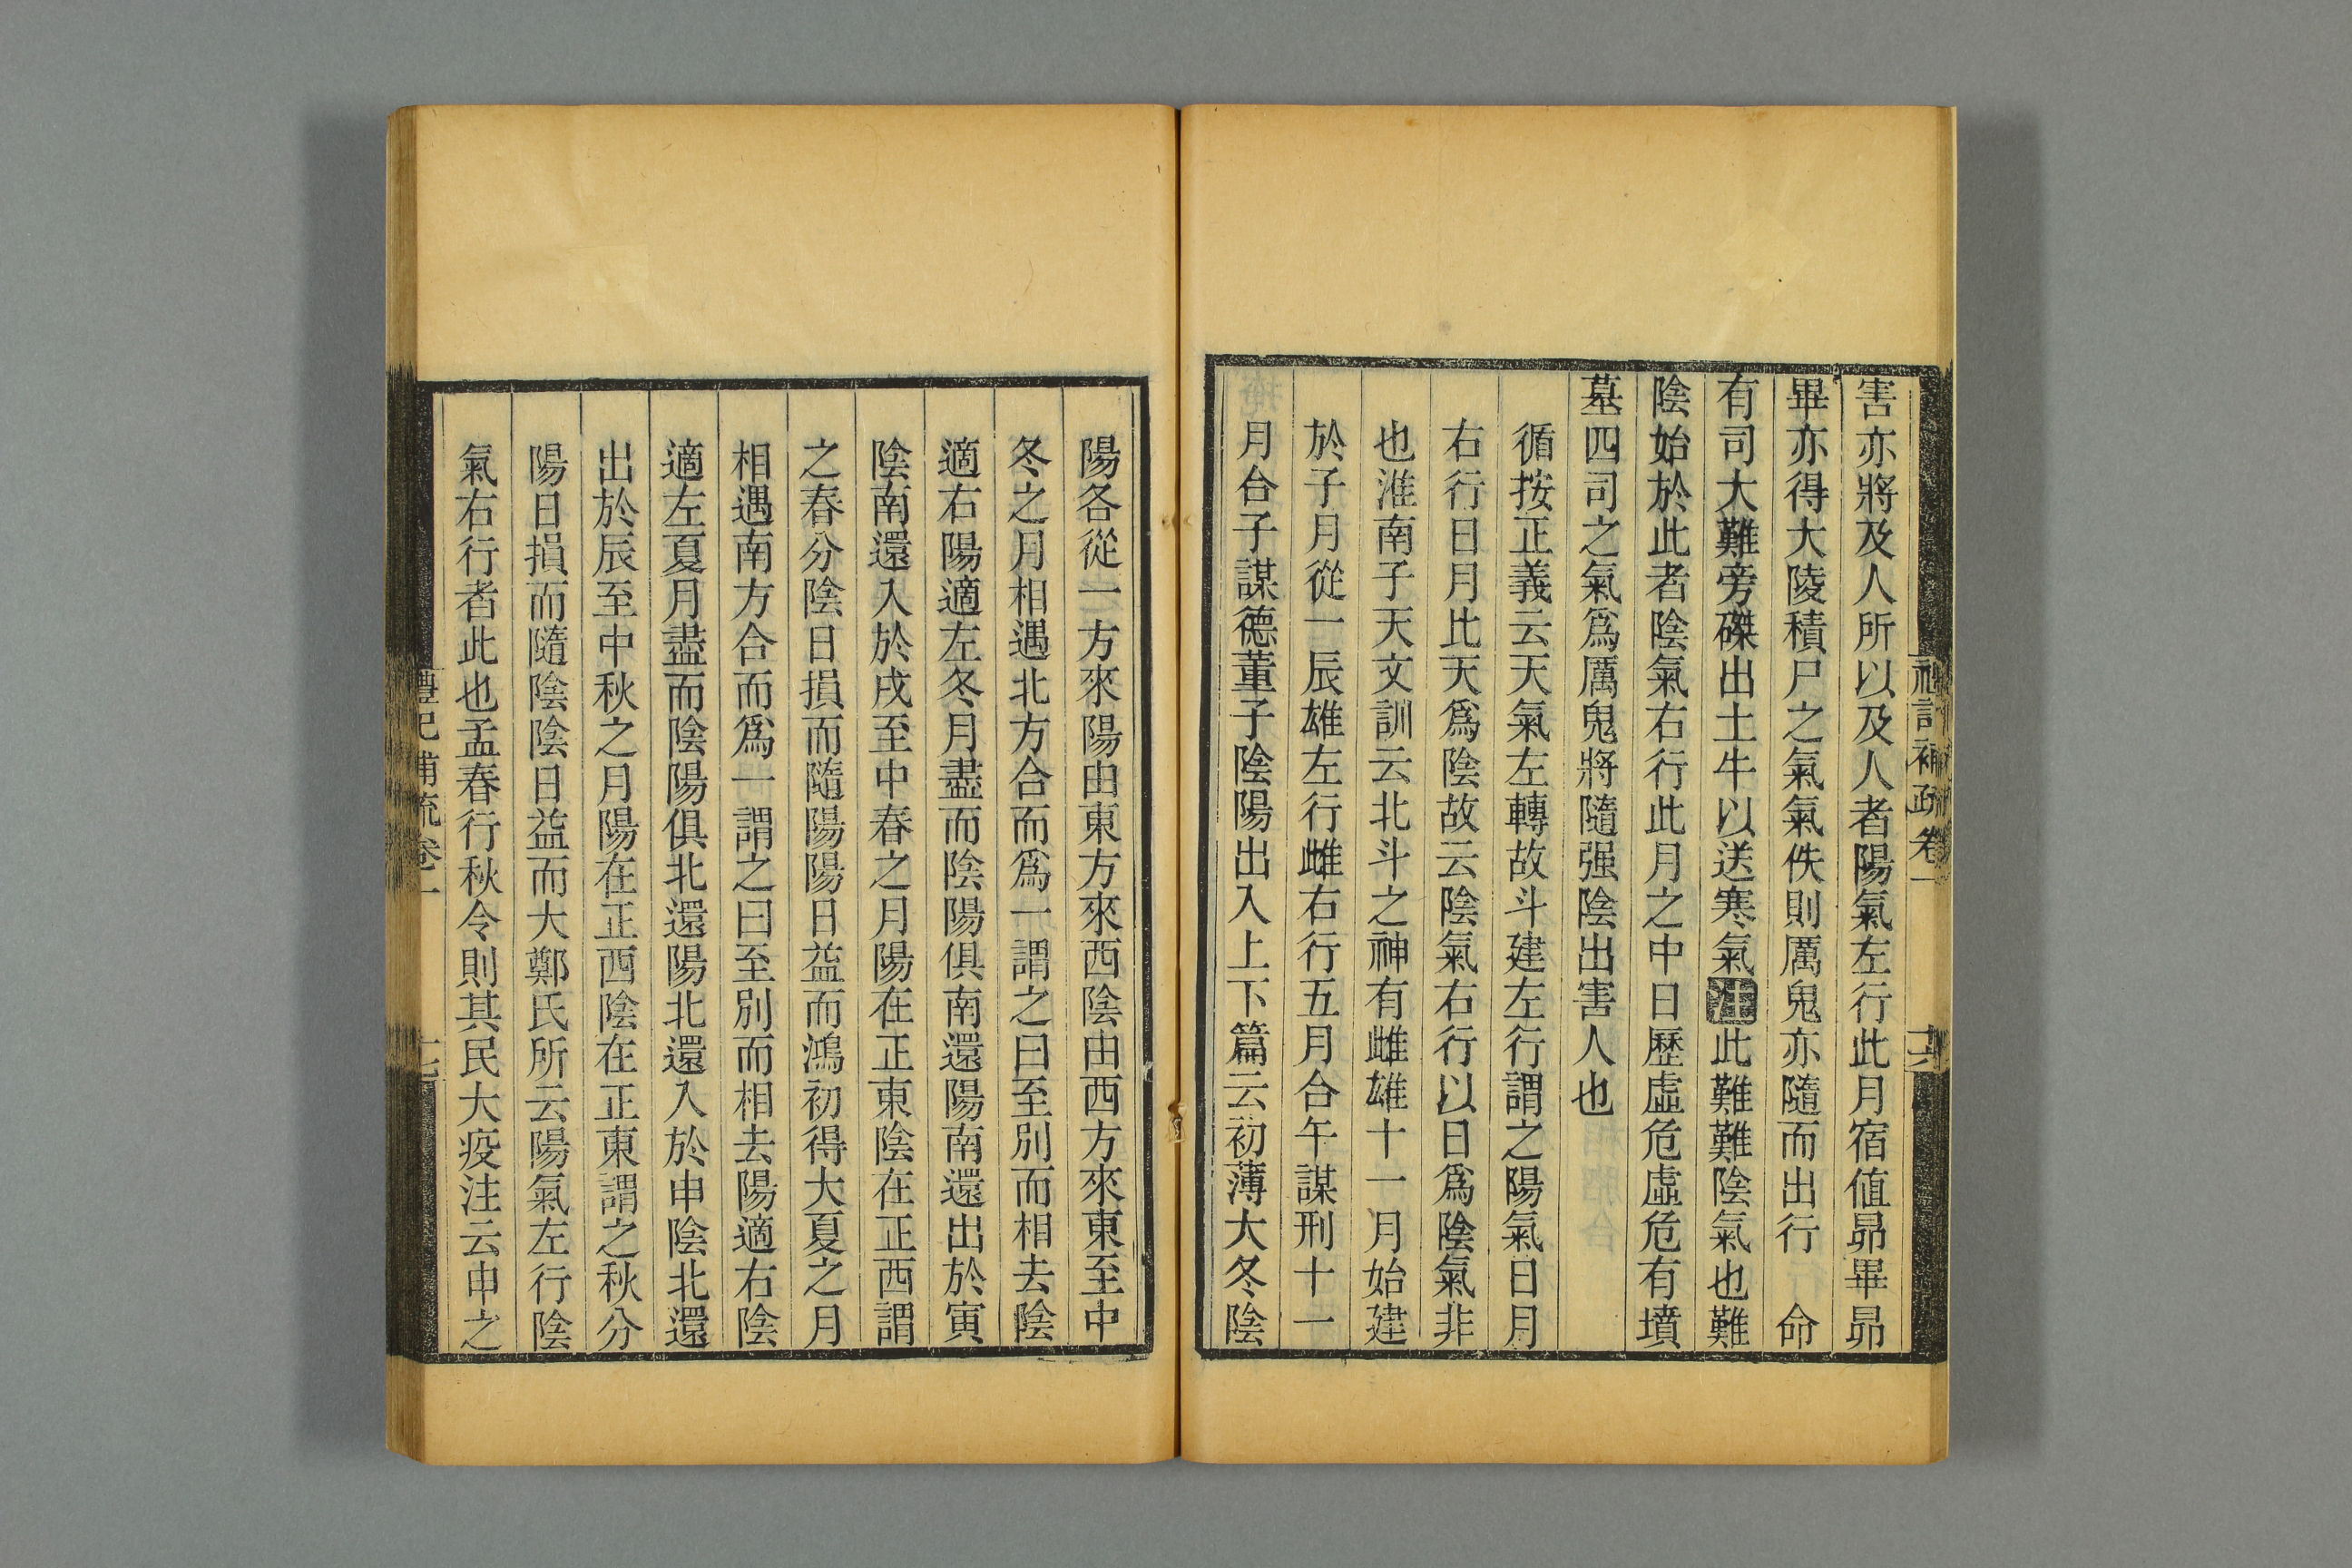 禮記補疏卷一
十六
害亦將及人所以及人者陽氣左行此月宿值昴畢昴
畢亦得大陵積尸之氣氣佚則厲鬼亦隨而出行 命
有司大難旁磔出土牛以送寒氣注此難難陰氣也難
陰始於此者陰氣右行此月之中日歷虛危虛危有墳
墓四司之氣爲厲鬼將隨强陰出害人也
循按正義云天氣左轉故斗建左行謂之陽氣日月
右行日月比天爲陰故云陰氣右行以日爲陰氣非
也淮南子天文訓云北斗之神有雌雄十一月始建
於子月從一辰雄左行雌右行五月合午謀刑十一
月合子謀德董子陰陽出入上下篇云初薄大冬陰
陽各從一方來陽由東方來西陰由西方來東至中
冬之月相遇北方合而爲一謂之曰至別而相去陰
適右陽適左冬月盡而陰陽俱南還陽南還出於寅
陰南還入於戌至中春之月陽在正東陰在正西謂
之春分陰日損而隨陽陽日益而鴻初得大夏之月
相遇南方合而爲一謂之曰至別而相去陽適右陰
適左夏月盡而陰陽俱北還陽北還入於申陰北還
出於辰至中秋之月陽在正西陰在正東謂之秋分
陽日損而隨陰陰日益而大鄭氏所云陽氣左行陰
氣右行者此也孟春行秋令則其民大疫注云申之
禮記補疏卷一
十七